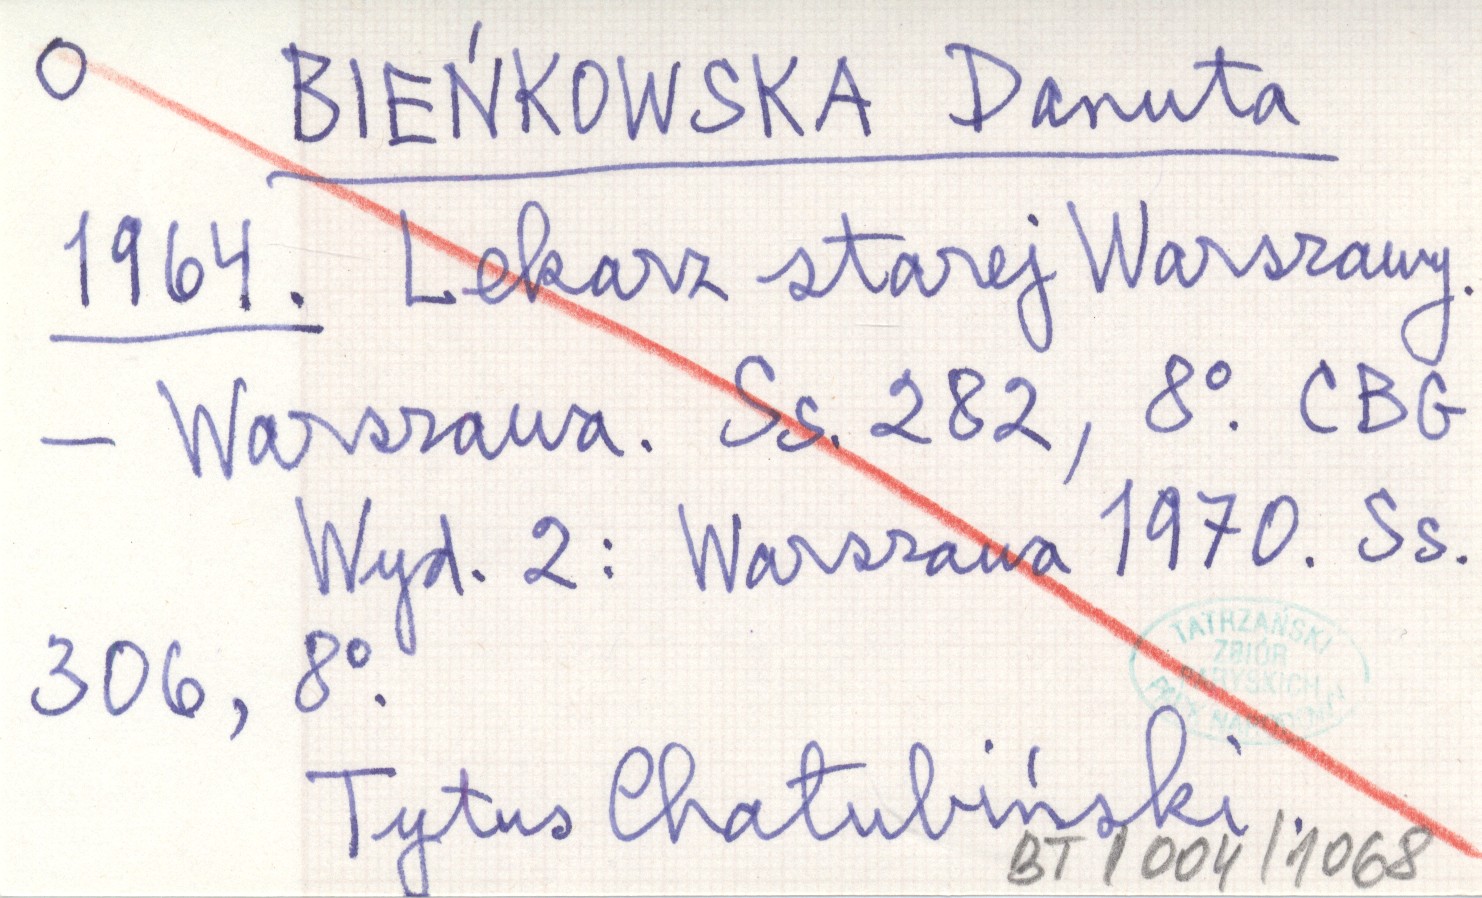 O BIEŃKOWSKA Danuta
1964. Lekarz starej Warszawy.
— Warszawa. Ss. 282, 8°. CBG
Wyd. 2: Warszawa 1970. Ss.
306, 8°.
TATRZAŃSKI
ZBIÓR
PARYSKICH
Tytus Chałubiński.
BT / 004 / 1068